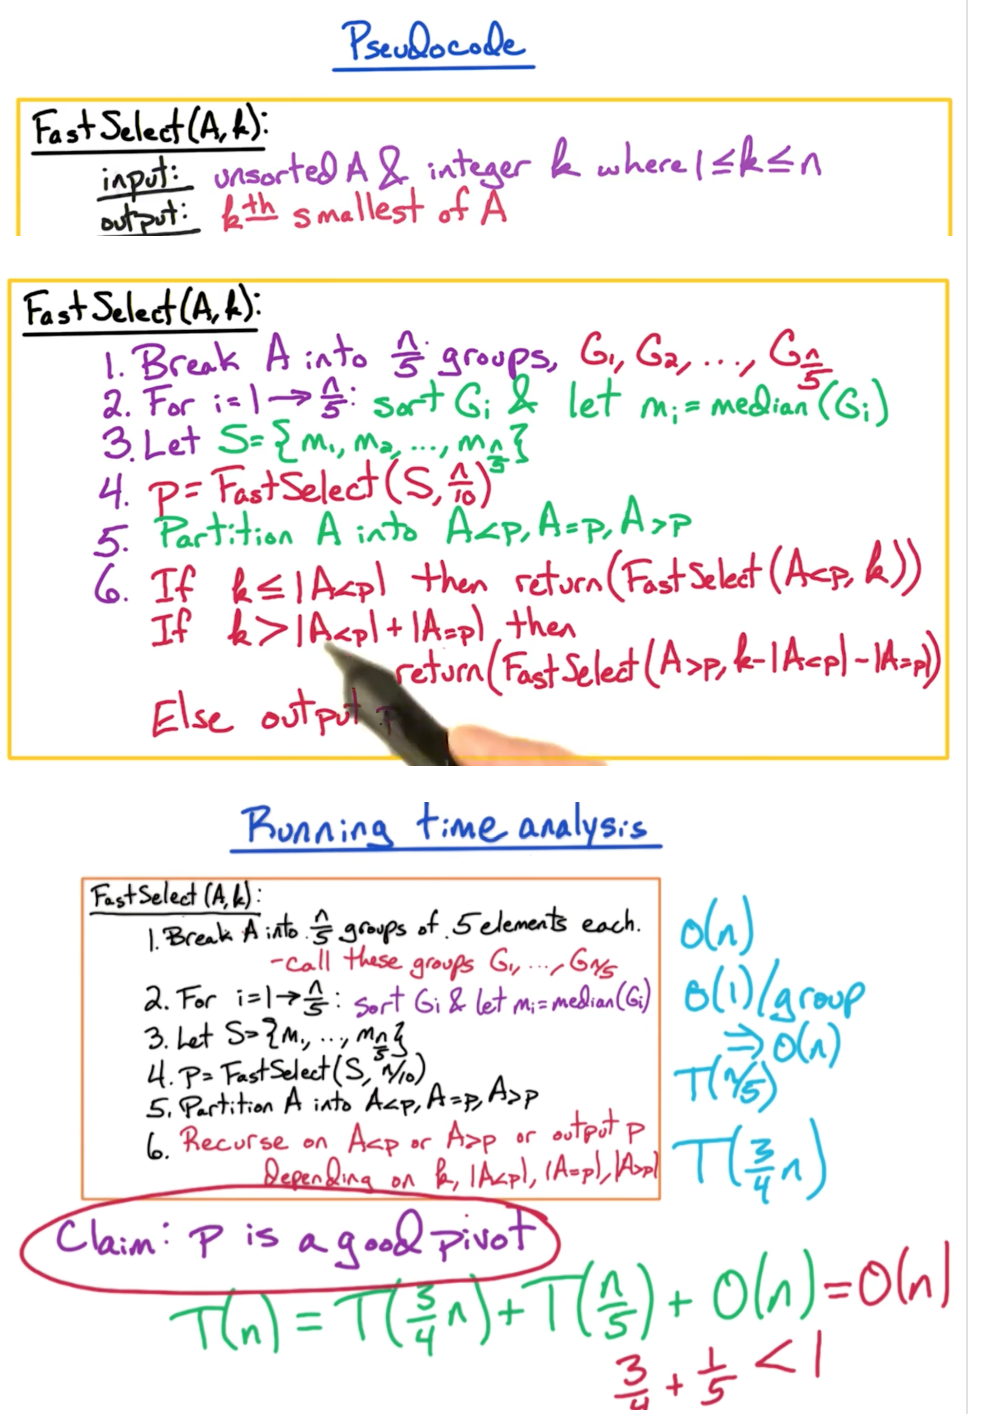 Pseudocode
FastSelect(A,k):
input: unsorted A & integer k where 1≤k≤n
output: kth smallest of A
FastSelect(A,k):
1. Break A into n/5 groups, G₁, G₂, ..., G_n/5
2. For i=1→n/5: sort Gᵢ & let mᵢ = median(Gᵢ)
3. Let S={m₁, m₂, ..., m_n/5}
4. p= FastSelect(S, n/10)
5. Partition A into A<p, A=p, A>p
6. If k≤|A<p| then return(FastSelect(A<p, k))
If k>|A<p|+|A=p| then
return(FastSelect(A>p, k-|A<p|-|A=p|))
Else output p
Running time analysis
FastSelect(A,k):
1. Break A into n/5 groups of 5 elements each. O(n)
-call these groups G₁, ..., G_n/5
2. For i=1→n/5: sort Gᵢ & let mᵢ=median(Gᵢ) O(1)/group
3. Let S={m₁, ..., m_n/5} ⇒ O(n)
4. p= FastSelect(S, n/10) T(n/5)
5. Partition A into A<p, A=p, A>p
6. Recurse on A<p or A>p or output p T(3/4 n)
Depending on k, |A<p|, |A=p|, |A>p|
Claim: p is a good pivot
T(n) = T(3/4 n) + T(n/5) + O(n) = O(n)
3/4 + 1/5 < 1